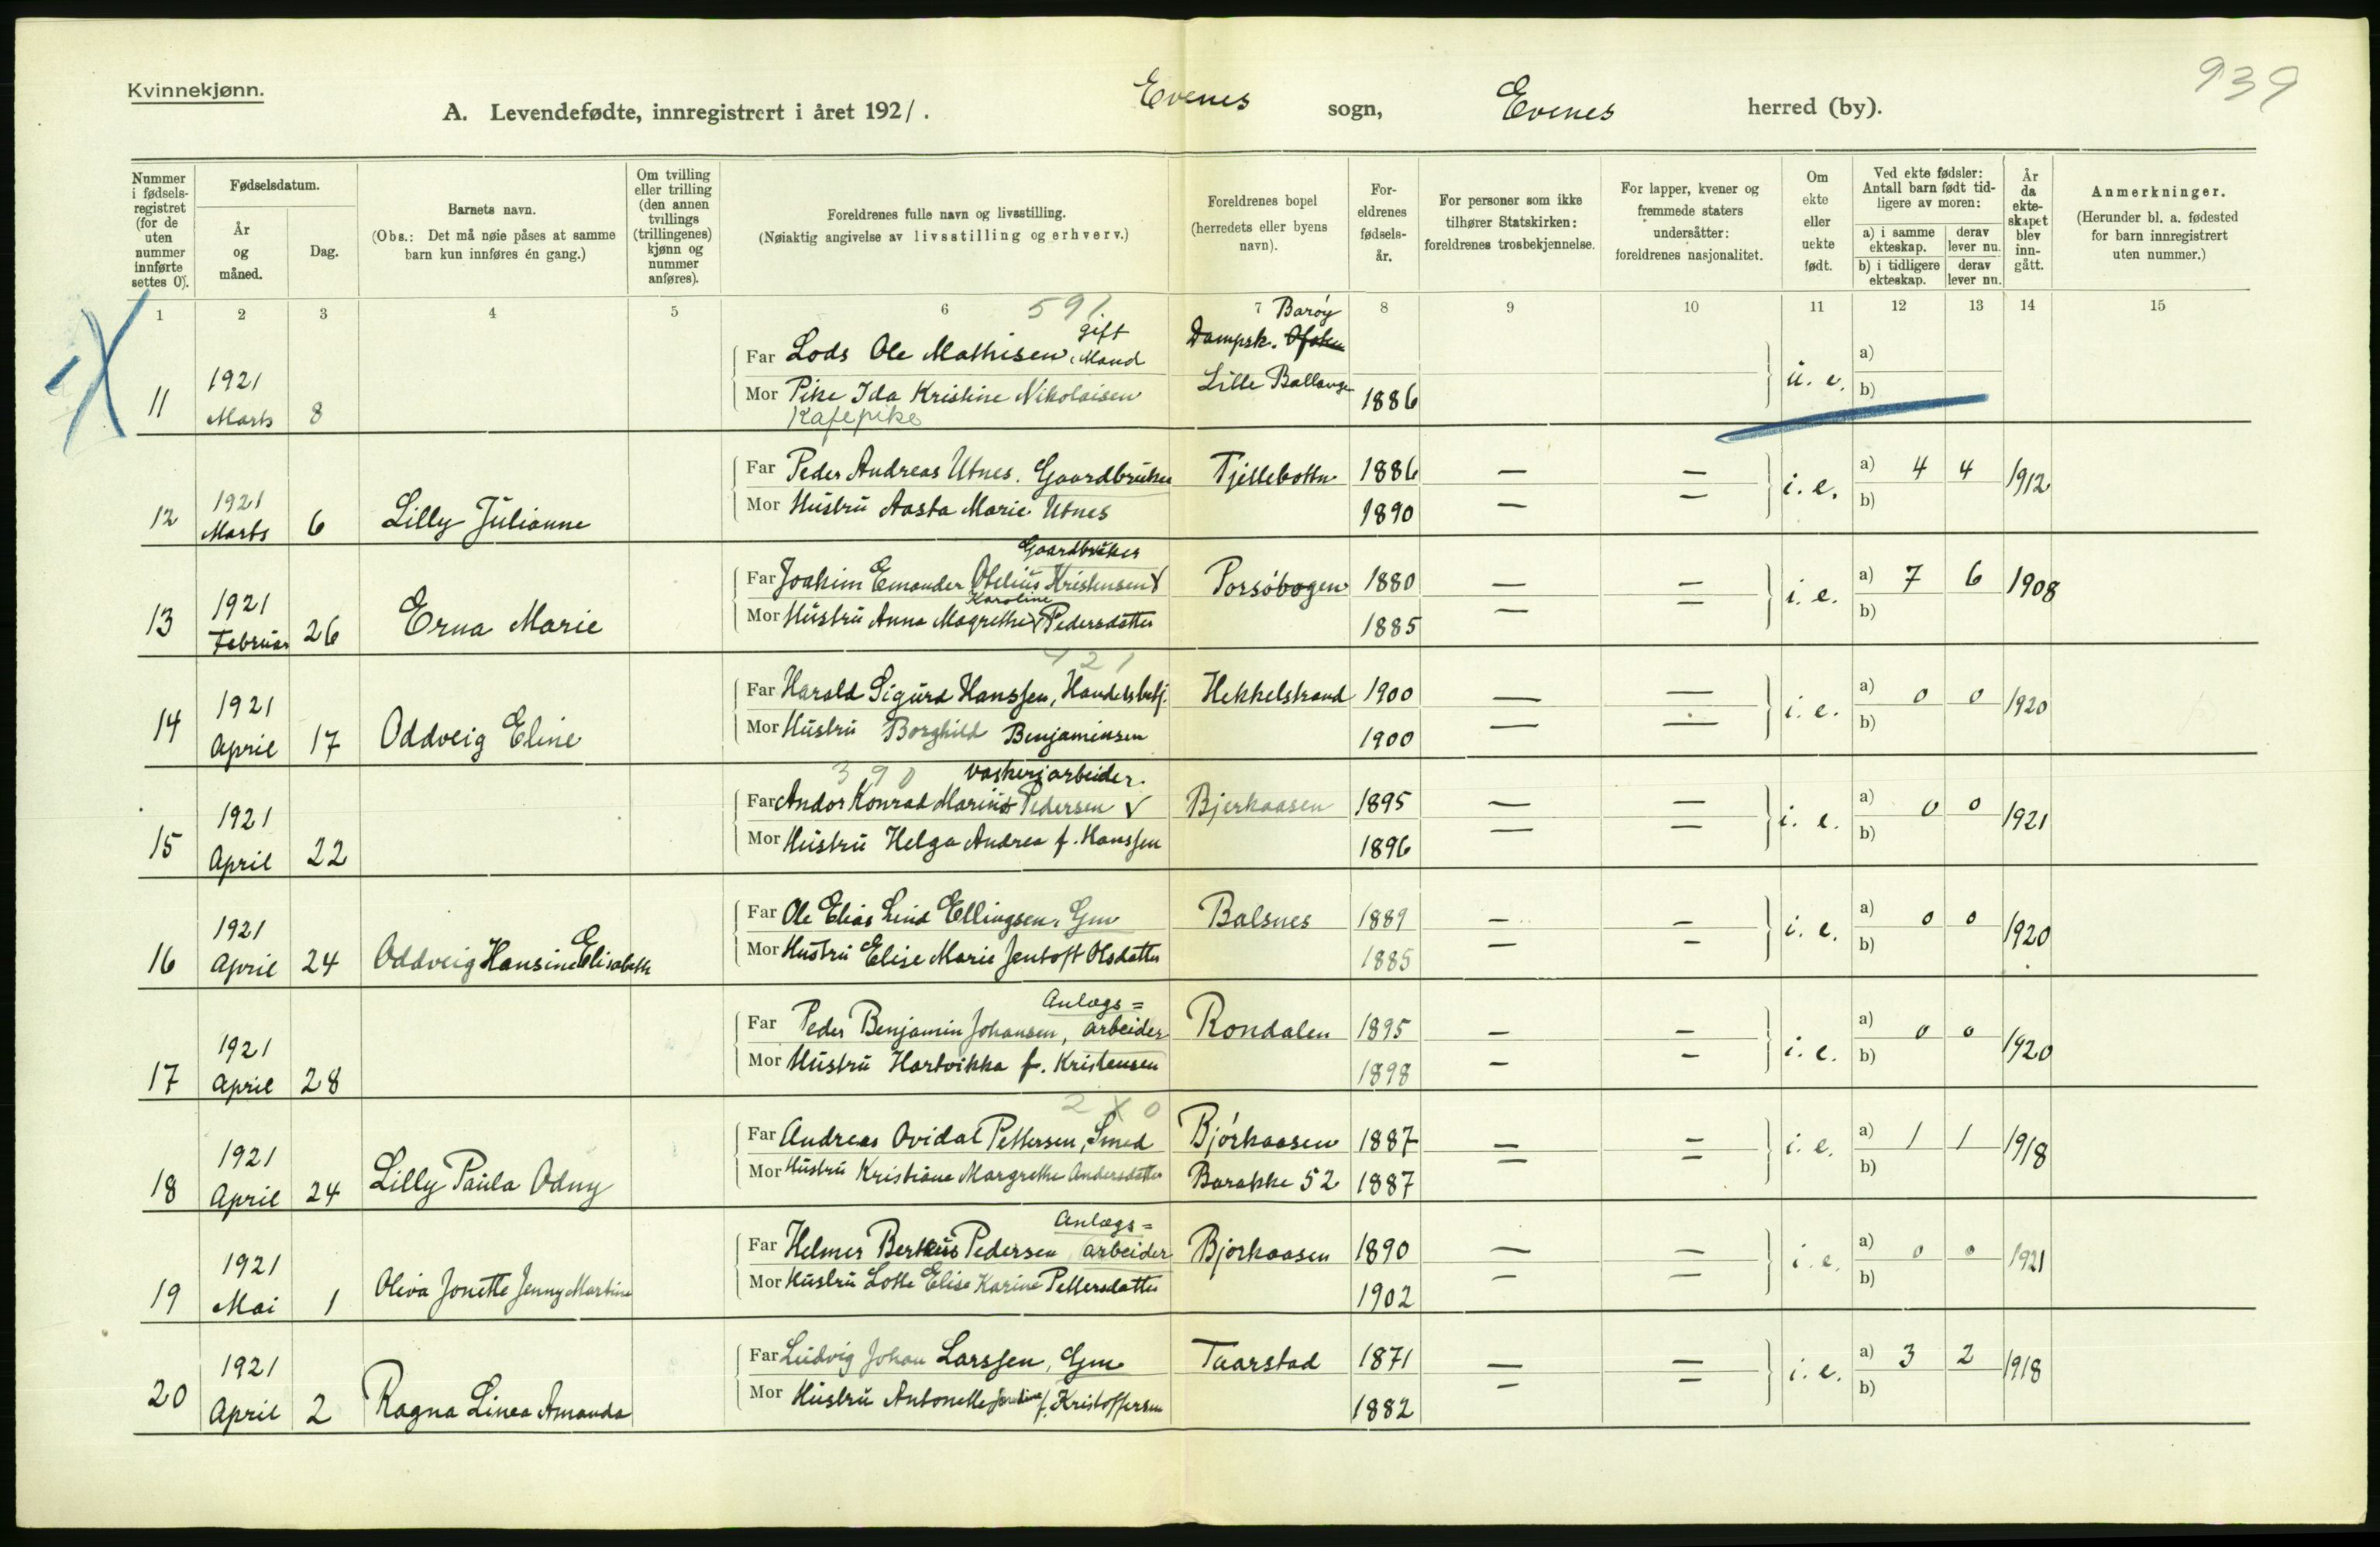 Kvinnekjønn.
939
A. Levendefødte, innregistrert i året 1921.
Evenes sogn, Evenes herred (by).
Nummer i fødsels-registret (for de uten nummer innførte settes 0).
Fødselsdatum.
År og måned.
Dag.
Barnets navn.
(Obs.: Det må nøie påses at samme barn kun innføres én gang.)
Om tvilling eller trilling (den annen tvillings (trillingenes) kjønn og nummer anføres).
Foreldrenes fulle navn og livsstilling.
(Nøiaktig angivelse av livsstilling og erhverv.)
Foreldrenes bopel (herredets eller byens navn).
For-eldrenes fødsels-år.
For personer som ikke tilhører Statskirken: foreldrenes trosbekjennelse.
For lapper, kvener og fremmede staters undersåtter: foreldrenes nasjonalitet.
Om ekte eller uekte født.
Ved ekte fødsler: Antall barn født tid-ligere av moren:
a) i samme ekteskap. derav lever nu.
b) i tidligere ekteskap. derav lever nu.
År da ekte-skapet blev inn-gått.
Anmerkninger.
(Herunder bl. a. fødested for barn innregistrert uten nummer.)
1 2 3 4 5 6 7 8 9 10 11 12 13 14 15
591
gift
Barøy
Far Lods Ole Mathisen, Mand Dampsk. Ofoten a)
11 1921 Marts 8
Mor Pike Ida Kristine Nikolaisen Lille Ballangen 1886 u. e. b)
Kafepike
Far Peder Andreas Utnes. Gaardbruker Tjellebotn 1886 — — a) 4 4
12 1921 Marts 6 Lilly Julianne
Mor Hustru Aasta Marie Utnes 1890 — — i. e. b) 1912
Gaardbruker
Far Joakim Emander Otelius Kristensen Porsöbogen 1880 — — a) 7 6
Karoline
13 1921 Februar 26 Erna Marie
Mor Hustru Anna Magrethe Pedersdatter 1885 — — i. e. b) 1908
421
Far Harald Sigurd Hanssen, Handelsbetj. Hekkelstrand 1900 — — a) 0 0
14 1921 April 17 Oddveig Eline
Mor Hustru Borghild Benjaminsen 1900 — — i. e. b) 1920
390 vaskeriarbeider.
Far Andor Konrad Marius Pedersen Bjerkaasen 1895 — — a) 0 0
15 1921 April 22
Mor Hustru Helga Andrea f. Hanssen 1896 — — i. e. b) 1921
Far Ole Elias Lind Ellingsen, Gm Balsnes 1889 — — a) 0 0
16 1921 April 24 Oddveig Hansine Elisabeth
Mor Hustru Elise Marie Jentoft Olsdatter 1885 — — i. e. b) 1920
Anlægs=
Far Peder Benjamin Johansen, arbeider Rondalen 1895 — — a) 0 0
17 1921 April 28
Mor Hustru Hartvikka f. Kristensen 1898 — — i. e. b) 1920
2 X 0
Far Andreas Ovidal Pettersen, Smed Bjørkaasen 1887 — — a) 1 1
18 1921 April 24 Lilly Paula Odny
Mor Hustru Kristiane Margrethe Andersdatter Barakke 52 1887 — — i. e. b) 1918
Anlægs=
Far Helmer Berteus Pedersen arbeider Bjorkaasen 1890 — — a) 0 0
19 1921 Mai 1 Oliva Jonette Jenny Martine
Mor Hustru Lotte Elise Karine Pettersdatter 1902 — — i. e. b) 1921
Far Ludvig Johan Larssen, Gm Taarstad 1871 — — a) 3 2
20 1921 April 2 Ragna Linea Amanda
Mor Hustru Antonette f. Kristoffersen 1882 — — i. e. b) 1918